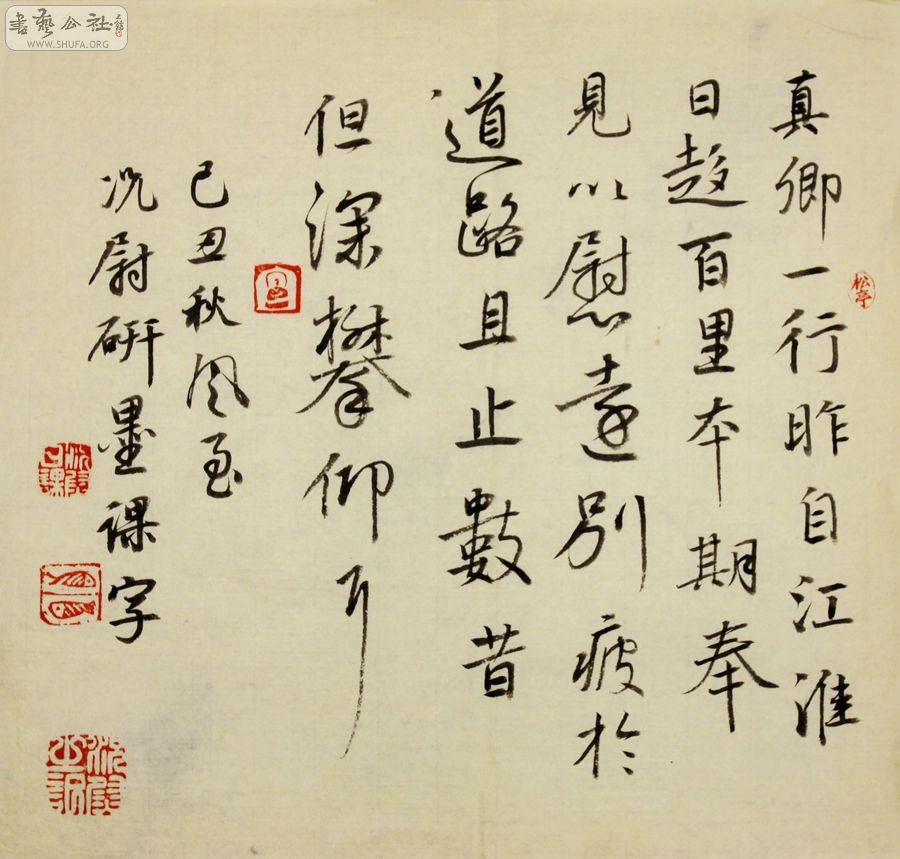 真卿一行昨自江淮
日趍百里本期奉
見以慰遠別疲於
道路且止數昔
但深攀仰耳
己丑秋風至
况尉研墨課字
松亭
書藝公社
WWW.SHUFA.ORG